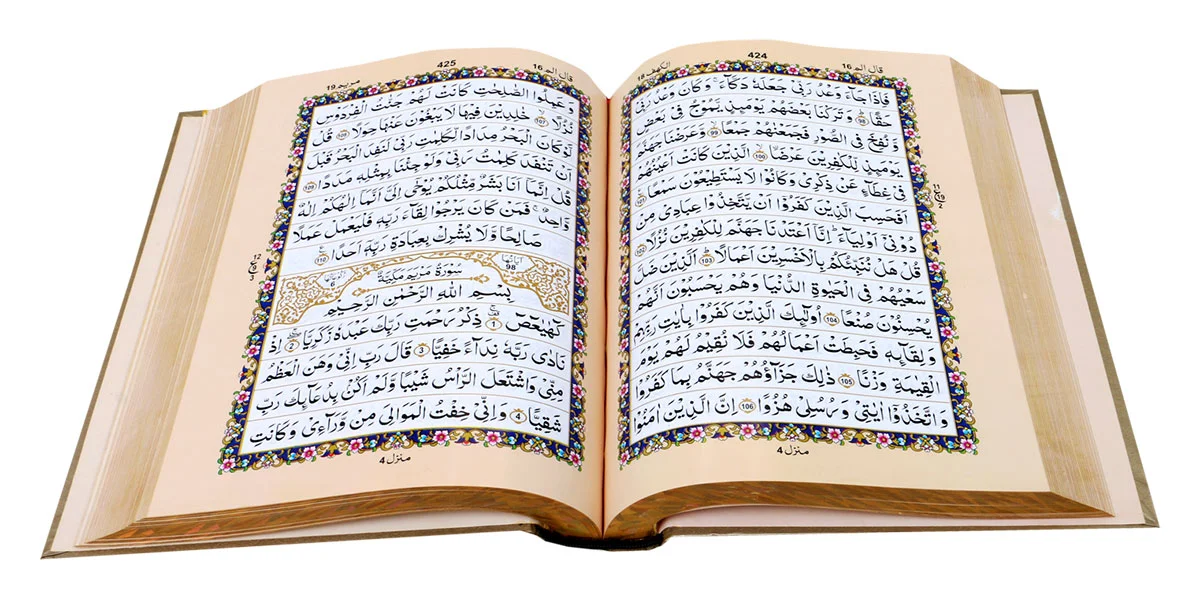 الكهف 18
424
قال الم 16
فَاِذَا جَآءَ وَعْدُ رَبِّیْ جَعَلَهٗ دَكَّآءَ ۚ وَ كَانَ وَعْدُ رَبِّیْ
حَقًّا ؕ 98 وَ تَرَكْنَا بَعْضَهُمْ یَوْمَىِٕذٍ یَّمُوْجُ فِیْ بَعْضٍ
وَّ نُفِخَ فِی الصُّوْرِ فَجَمَعْنٰهُمْ جَمْعًا ۙ 99 وَّ عَرَضْنَا جَهَنَّمَ
یَوْمَىِٕذٍ لِّلْكٰفِرِیْنَ عَرْضَا ۙ 100 الَّذِیْنَ كَانَتْ اَعْیُنُهُمْ
فِیْ غِطَآءٍ عَنْ ذِكْرِیْ وَ كَانُوْا لَا یَسْتَطِیْعُوْنَ سَمْعًا 101
اَفَحَسِبَ الَّذِیْنَ كَفَرُوْۤا اَنْ یَّتَّخِذُوْا عِبَادِیْ مِنْ
دُوْنِیْۤ اَوْلِیَآءَ ؕ اِنَّاۤ اَعْتَدْنَا جَهَنَّمَ لِلْكٰفِرِیْنَ نُزُلًا 102
قُلْ هَلْ نُنَبِّئُكُمْ بِالْاَخْسَرِیْنَ اَعْمَالًا ؕ 103 اَلَّذِیْنَ ضَلَّ
سَعْیُهُمْ فِی الْحَیٰوةِ الدُّنْیَا وَ هُمْ یَحْسَبُوْنَ اَنَّهُمْ
یُحْسِنُوْنَ صُنْعًا 104 اُولٰٓىِٕكَ الَّذِیْنَ كَفَرُوْا بِاٰیٰتِ رَبِّهِمْ
وَ لِقَآىِٕهٖ فَحَبِطَتْ اَعْمَالُهُمْ فَلَا نُقِیْمُ لَهُمْ یَوْمَ
الْقِیٰمَةِ وَزْنًا 105 ذٰلِكَ جَزَآؤُهُمْ جَهَنَّمُ بِمَا كَفَرُوْا
وَ اتَّخَذُوْۤا اٰیٰتِیْ وَ رُسُلِیْ هُزُوًا 106 اِنَّ الَّذِیْنَ اٰمَنُوْا
منزل 4
قال الم 16
425
مريم 19
وَ عَمِلُوا الصّٰلِحٰتِ كَانَتْ لَهُمْ جَنّٰتُ الْفِرْدَوْسِ
نُزُلًا ۙ 107 خٰلِدِیْنَ فِیْهَا لَا یَبْغُوْنَ عَنْهَا حِوَلًا 108 قُلْ
لَّوْ كَانَ الْبَحْرُ مِدَادًا لِّكَلِمٰتِ رَبِّیْ لَنَفِدَ الْبَحْرُ قَبْلَ
اَنْ تَنْفَدَ كَلِمٰتُ رَبِّیْ وَ لَوْ جِئْنَا بِمِثْلِهٖ مَدَدًا 109
قُلْ اِنَّمَاۤ اَنَا بَشَرٌ مِّثْلُكُمْ یُوْحٰۤی اِلَیَّ اَنَّمَاۤ اِلٰهُكُمْ اِلٰهٌ
وَّاحِدٌ ۚ فَمَنْ كَانَ یَرْجُوْا لِقَآءَ رَبِّهٖ فَلْیَعْمَلْ عَمَلًا
صَالِحًا وَّ لَا یُشْرِكْ بِعِبَادَةِ رَبِّهٖۤ اَحَدًا 110
اٰیاتها 98 سُوْرَةُ مَرْیَمَ مَكِّیَّةٌ
بِسْمِ اللّٰهِ الرَّحْمٰنِ الرَّحِیْمِ
كٓهٰیٰعٓصٓ 1 ذِكْرُ رَحْمَتِ رَبِّكَ عَبْدَهٗ زَكَرِیَّا 2 اِذْ
نَادٰی رَبَّهٗ نِدَآءً خَفِیًّا 3 قَالَ رَبِّ اِنِّیْ وَهَنَ الْعَظْمُ
مِنِّیْ وَ اشْتَعَلَ الرَّاْسُ شَیْبًا وَّ لَمْ اَكُنْۢ بِدُعَآىِٕكَ رَبِّ
شَقِیًّا 4 وَ اِنِّیْ خِفْتُ الْمَوَالِیَ مِنْ وَّرَآءِیْ وَ كَانَتِ
منزل 4